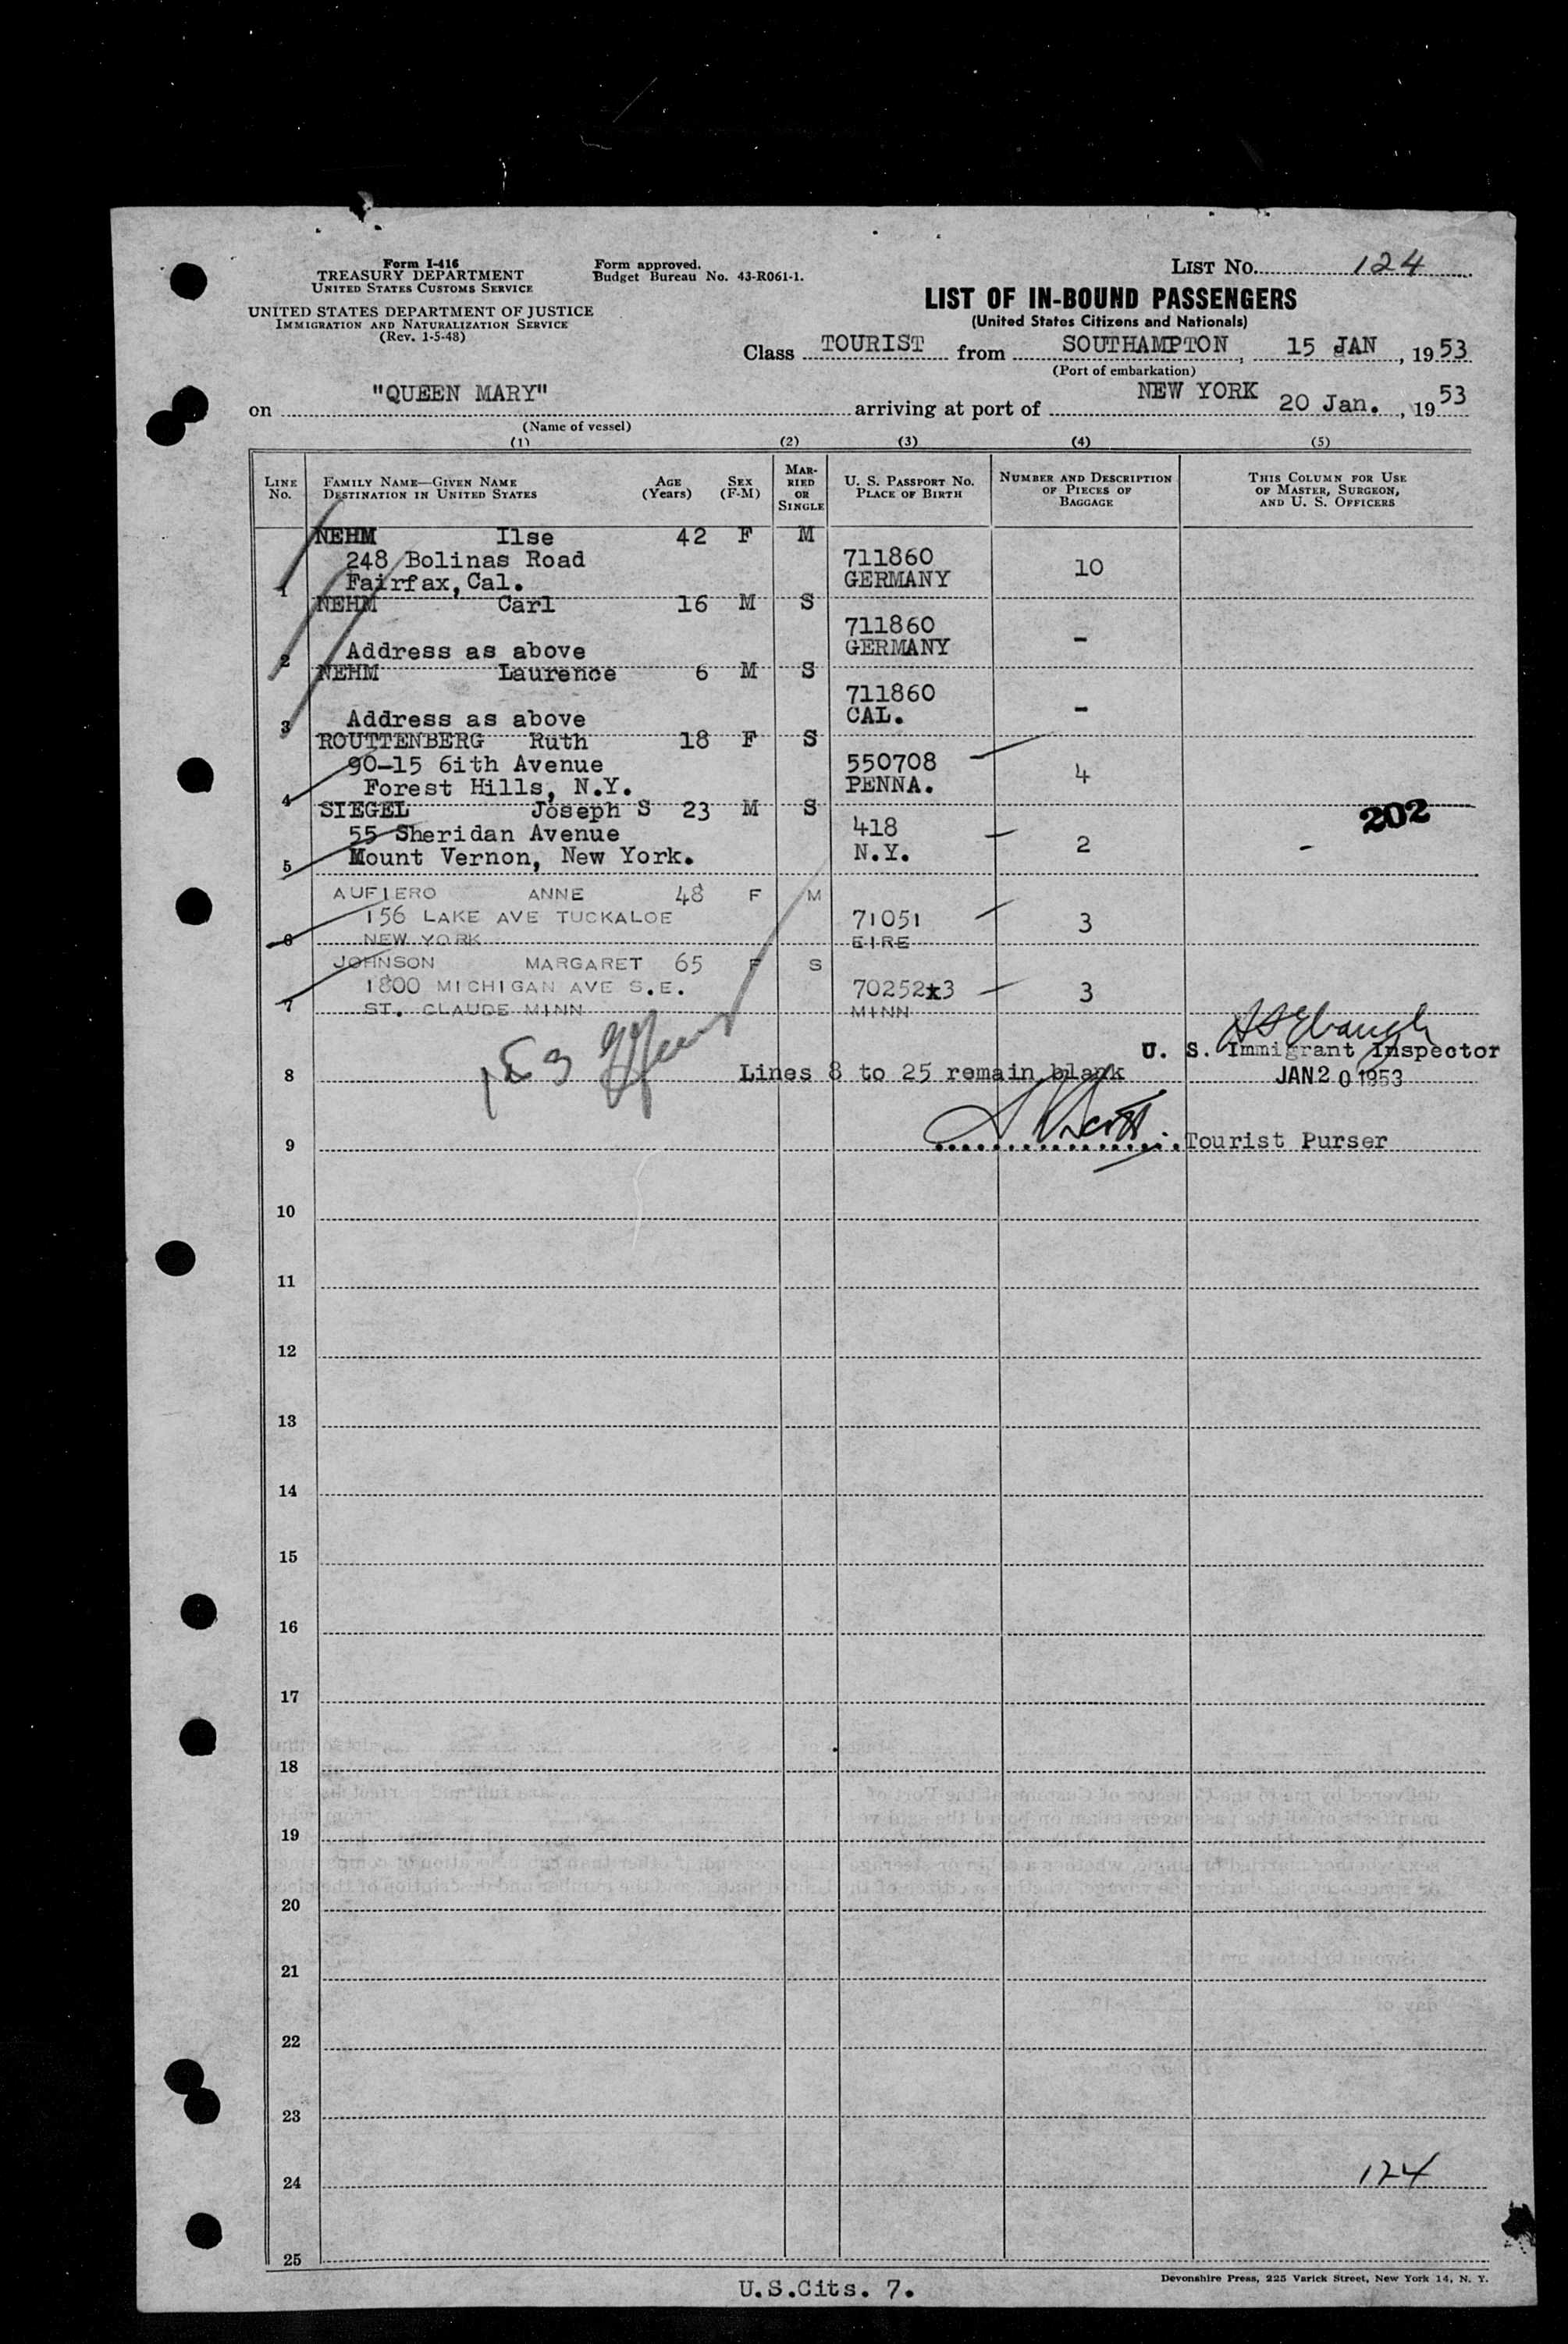 Form I-416
TREASURY DEPARTMENT
UNITED STATES CUSTOMS SERVICE
UNITED STATES DEPARTMENT OF JUSTICE
IMMIGRATION AND NATURALIZATION SERVICE
(Rev. 1-5-48)
Form approved.
Budget Bureau No. 43-R061-1.
LIST No. 124
LIST OF IN-BOUND PASSENGERS
(United States Citizens and Nationals)
Class TOURIST from SOUTHAMPTON, 15 JAN, 1953
(Port of embarkation)
on "QUEEN MARY" arriving at port of NEW YORK 20 Jan., 1953
(Name of vessel)
(1) (2) (3) (4) (5)
LINE No.
FAMILY NAME—GIVEN NAME
DESTINATION IN UNITED STATES
AGE (Years)
SEX (F-M)
MARRIED OR SINGLE
U. S. PASSPORT No.
PLACE OF BIRTH
NUMBER AND DESCRIPTION OF PIECES OF BAGGAGE
THIS COLUMN FOR USE OF MASTER, SURGEON, AND U. S. OFFICERS
NEHM Ilse 42 F M
248 Bolinas Road 711860
1 Fairfax, Cal. GERMANY 10
NEHM Carl 16 M S
711860
2 Address as above GERMANY -
NEHM Laurence 6 M S
711860
3 Address as above CAL. -
ROUTTENBERG Ruth 18 F S
90-15 6ith Avenue 550708
4 Forest Hills, N.Y. PENNA. 4
SIEGEL Joseph S 23 M S 202
55 Sheridan Avenue 418
5 Mount Vernon, New York. N.Y. 2 -
AUFIERO ANNE 48 F M
156 LAKE AVE TUCKALOE 71051 3
6 NEW YORK EIRE
JOHNSON MARGARET 65 F S
1800 MICHIGAN AVE S.E. 70252x3 3
7 ST. CLAUDE MINN MINN
U. S. Immigrant Inspector
8 Lines 8 to 25 remain blank JAN 20 1953
9 Tourist Purser
10
11
12
13
14
15
16
17
18
19
20
21
22
23
24 124
25
U.S.Cits. 7.
Devonshire Press, 225 Varick Street, New York 14, N. Y.